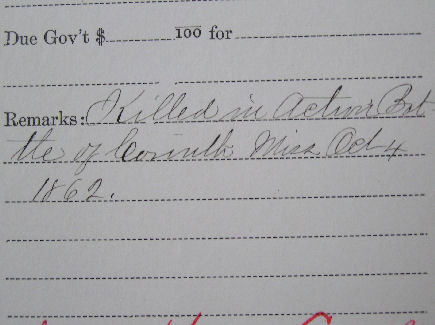 Due Gov't $ 100 for
Remarks: Killed in Action Bat
tle of Corinth Miss Oct 4
1862.